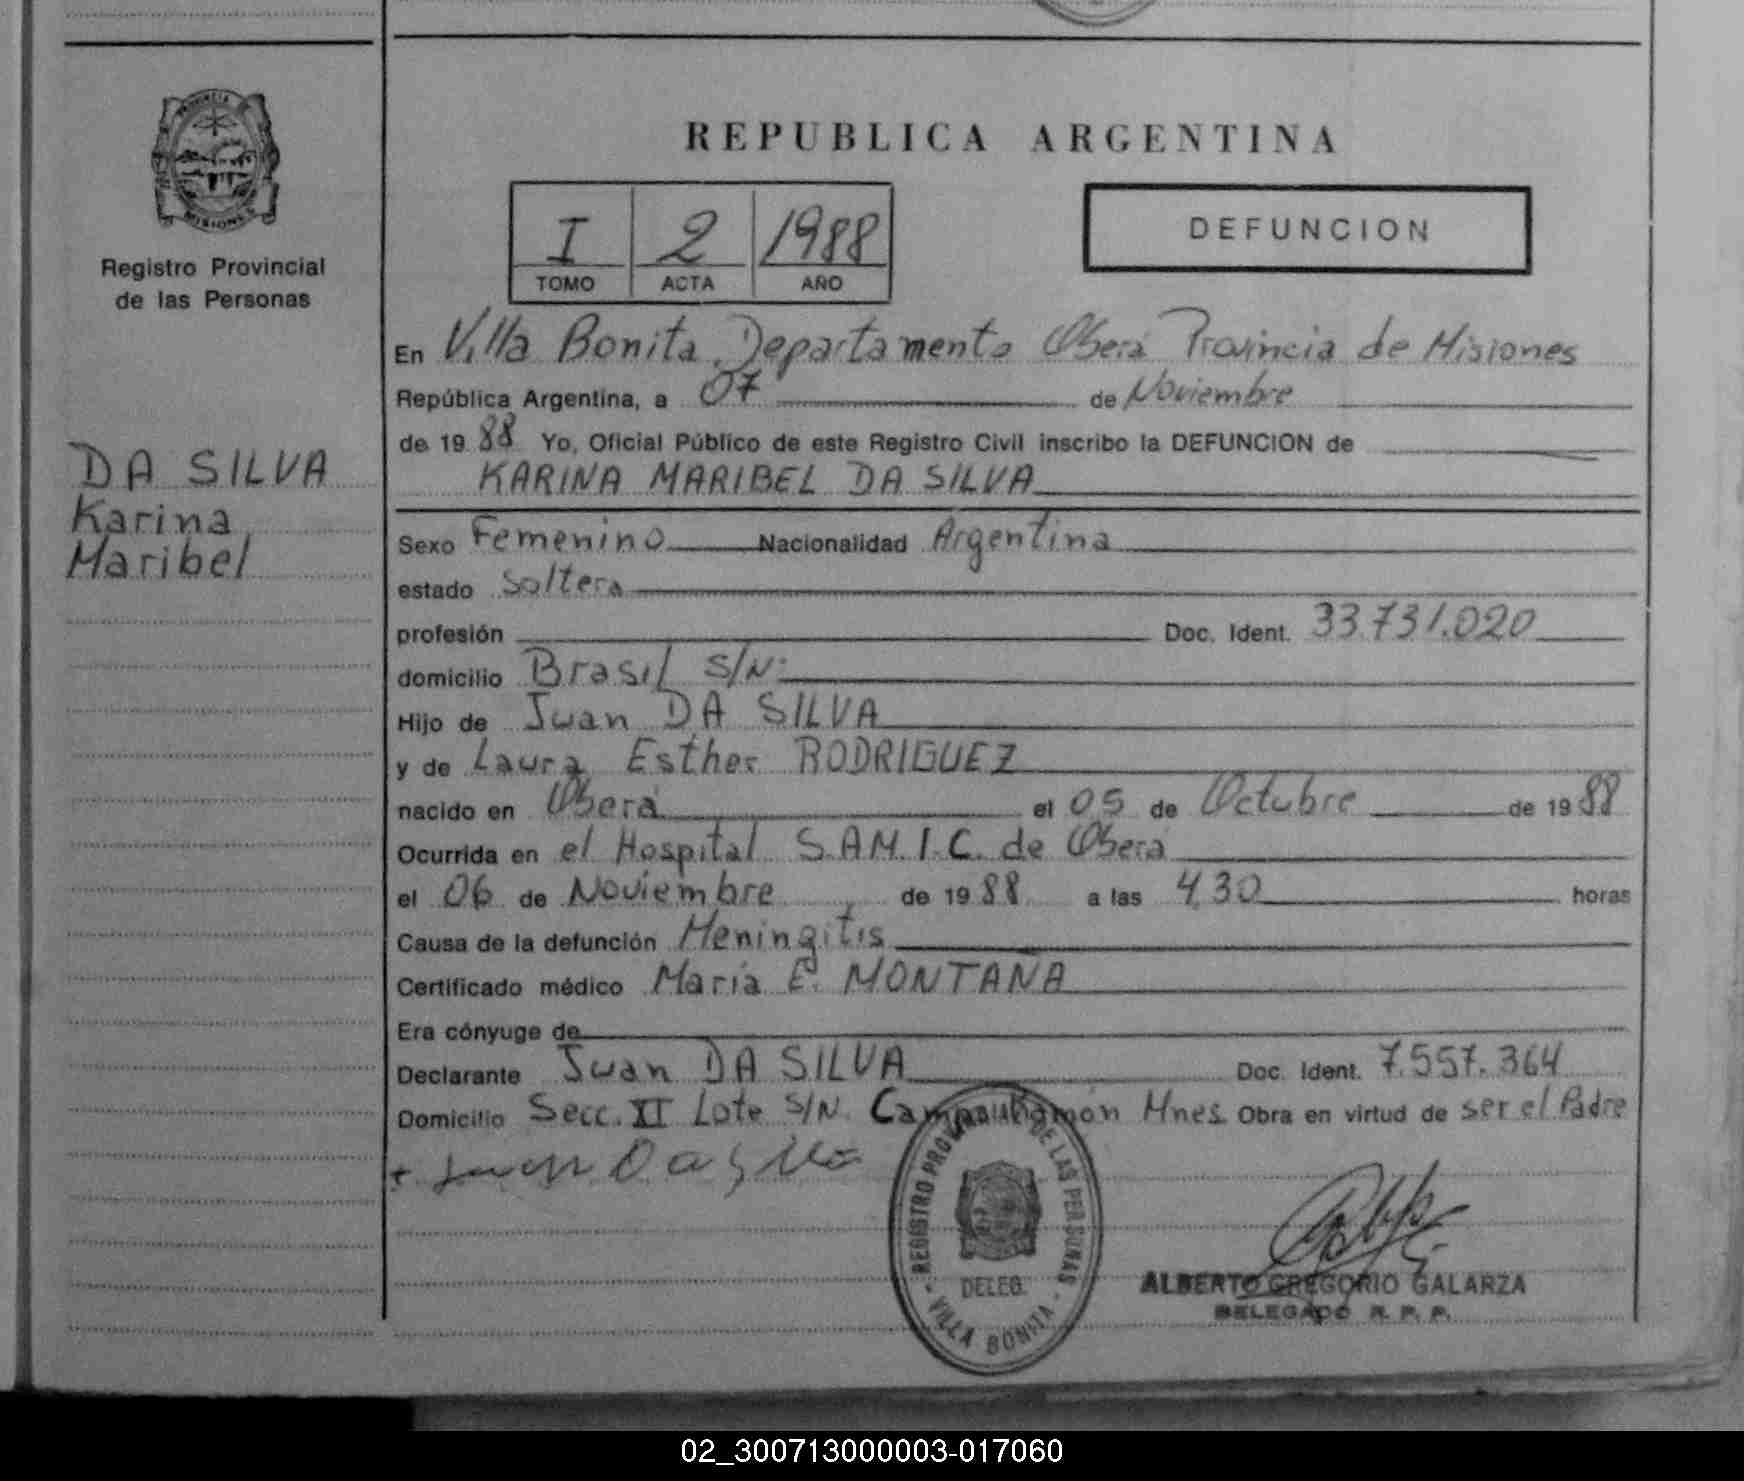 PROVINCIA DE
MISIONES
Registro Provincial
de las Personas
DA SILVA
Karina
Maribel
REPUBLICA ARGENTINA
I 2 1988
TOMO ACTA AÑO
DEFUNCION
En Villa Bonita, Departamento Oberá Provincia de Misiones
República Argentina, a 07 de Noviembre
de 1988 Yo, Oficial Público de este Registro Civil inscribo la DEFUNCION de
KARINA MARIBEL DA SILVA
Sexo Femenino Nacionalidad Argentina
estado Soltera
profesión Doc. Ident. 33.731.020
domicilio Brasil S/N:
Hijo de Juan DA SILVA
y de Laura Esther RODRIGUEZ
nacido en Oberá el 05 de Octubre de 1988
Ocurrida en el Hospital S.A.M.I.C. de Oberá
el 06 de Noviembre de 1988 a las 4,30 horas
Causa de la defunción Meningitis
Certificado médico María E. MONTANA
Era cónyuge de
Declarante Juan DA SILVA Doc. Ident. 7.557.364
Domicilio Secc. XI Lote S/N. Campo Ramón Mnes. Obra en virtud de ser el Padre
+ Juan Da Silva
REGISTRO PROVINCIAL DE LAS PERSONAS
DELEG.
- VILLA BONITA -
ALBERTO GREGORIO GALARZA
DELEGADO R. P. P.
02_300713000003-017060